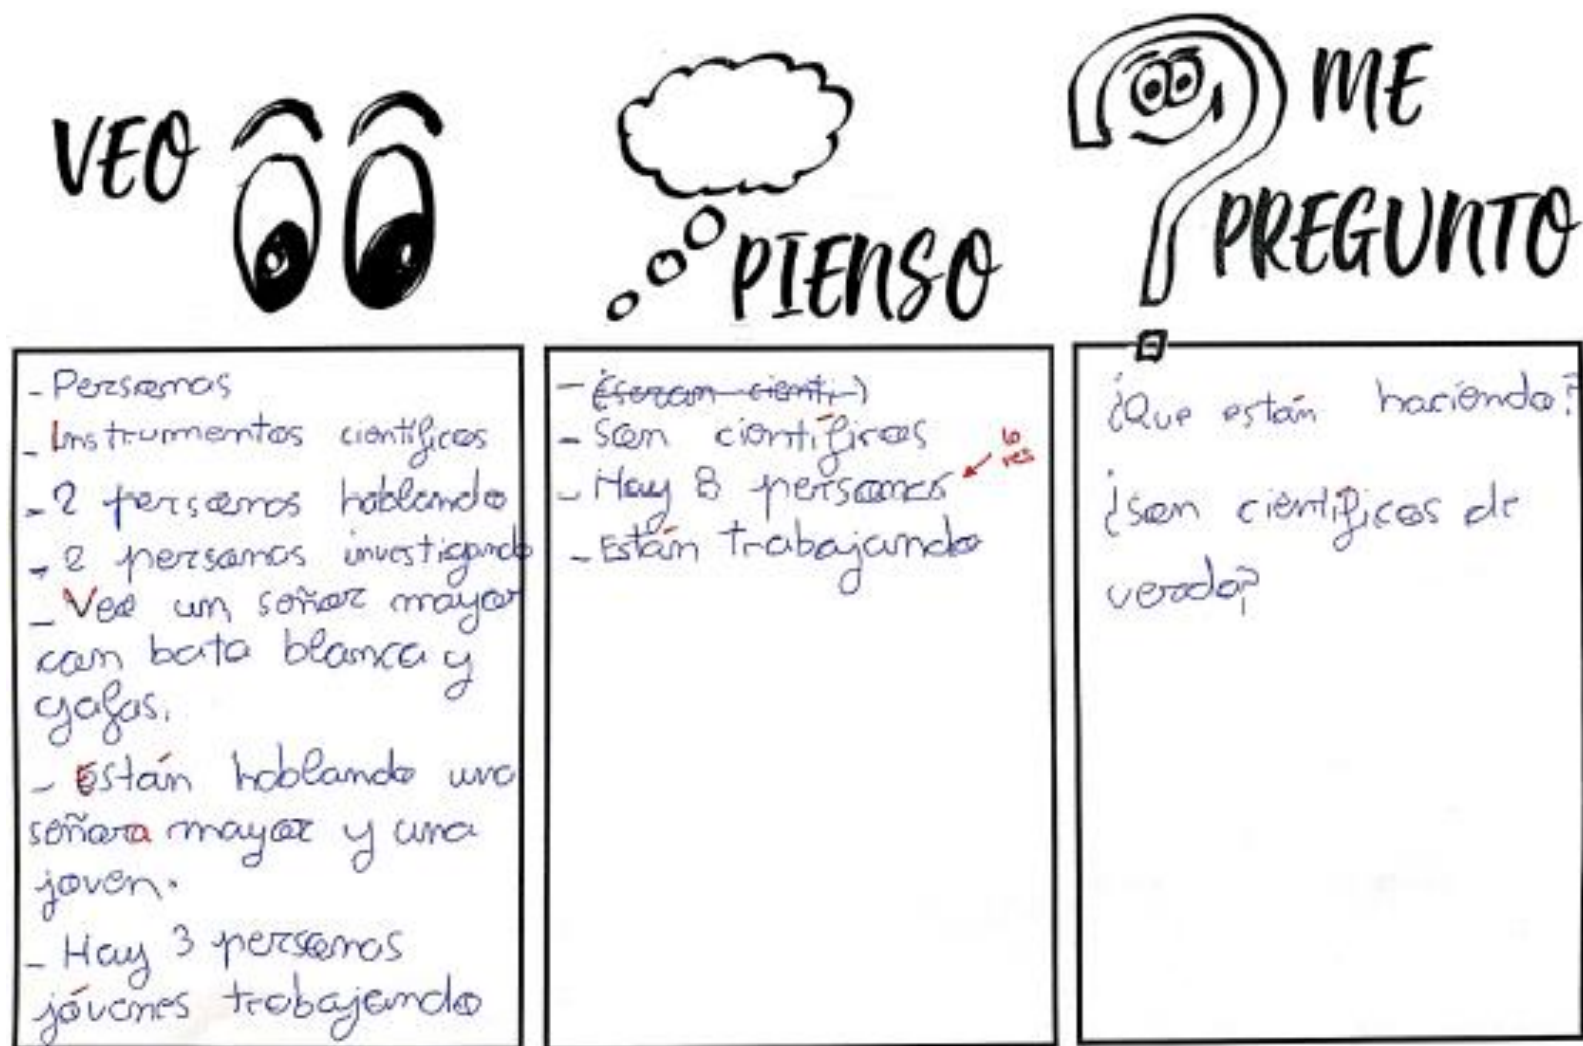 VEO
PIENSO
ME
PREGUNTO
- Personas
- Instrumentos científicos
- 2 personas hablando
- 2 personas investigando
- Veo un señor mayor
con bata blanca y
gafas.
- Están hablando una
señora mayor y una
joven.
- Hay 3 personas
jóvenes trabajando
- Son científicos
- Hay 8 personas
lo
ves
- Están trabajando
¿Que están haciendo?
¿son científicos de
verda?